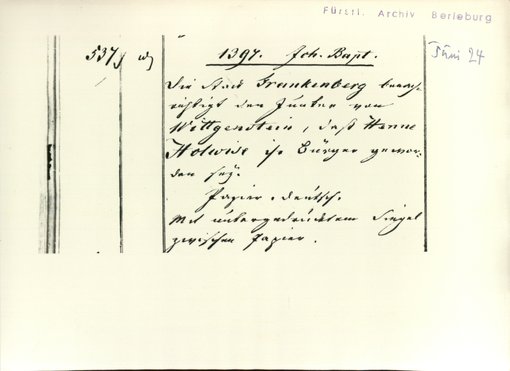 Fürstl. Archiv Berleburg
Juni 24
537, w)
1397. Joh. Bapt.
Die Stadt Frankenberg benach-
richtigt den Junker von
Wittgenstein, daß Henne
Holwise ihr Bürger gewor-
den sey.
Papier. deutsch.
Mit untergedrücktem Siegel
zwischen Papier.